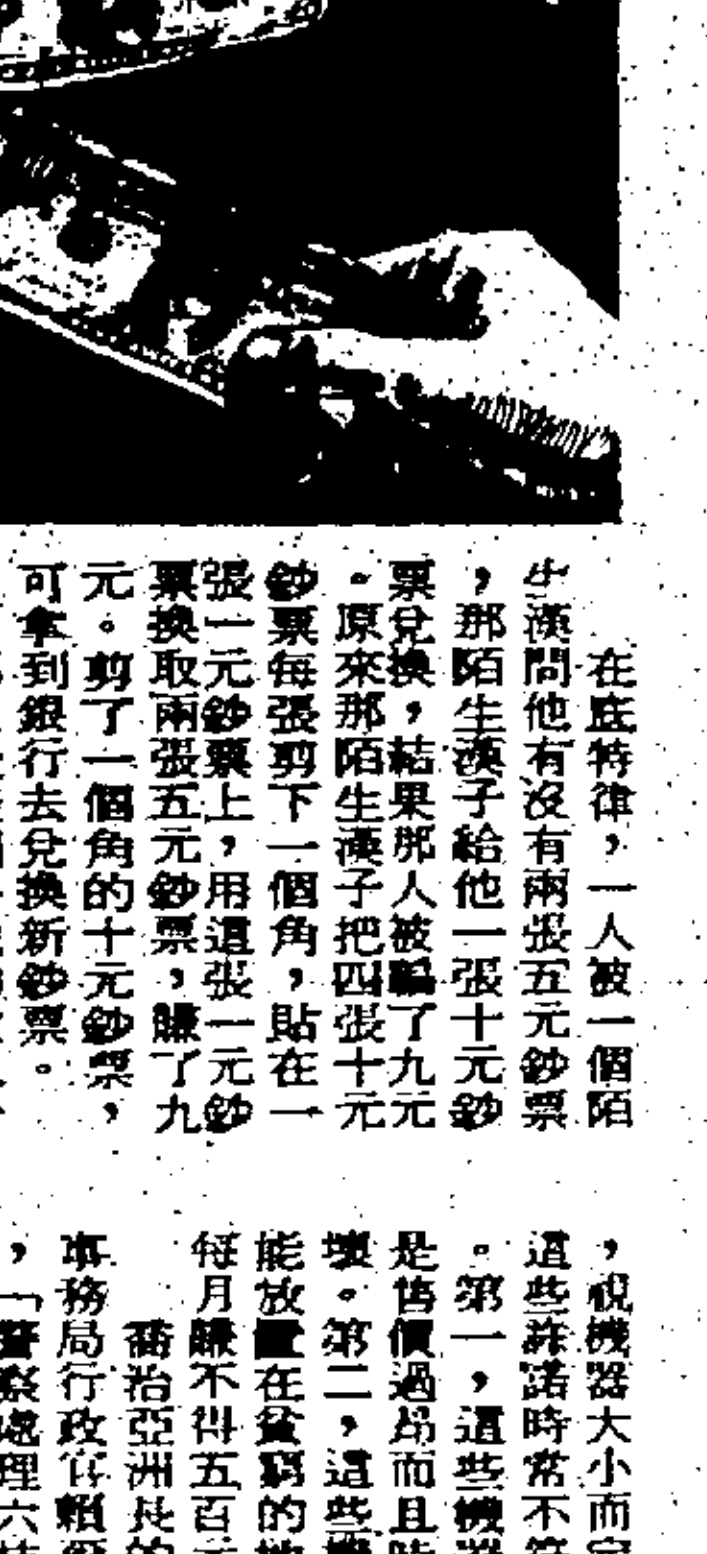 在底特律，一人被一個陌
生漢問他有沒有兩張五元鈔票
，那陌生漢子給他一張十元鈔
票兌換，結果那人被騙了九元
。原來那陌生漢子把四張十元
鈔票每張剪下一個角，貼在一
張一元鈔票上，用這張一元鈔
票換取兩張五元鈔票，賺了九
元。剪了一個角的十元鈔票，
可拿到銀行去兌換新鈔票。
，視機器大小而定
這些許諾時常不
。第一，這些機器
是售價過昂而且
壞。第二，這些機
能放置在貧窮的地
每月賺不得五百元
喬治亞洲長的
事務局行政官賴
，「警察處理六